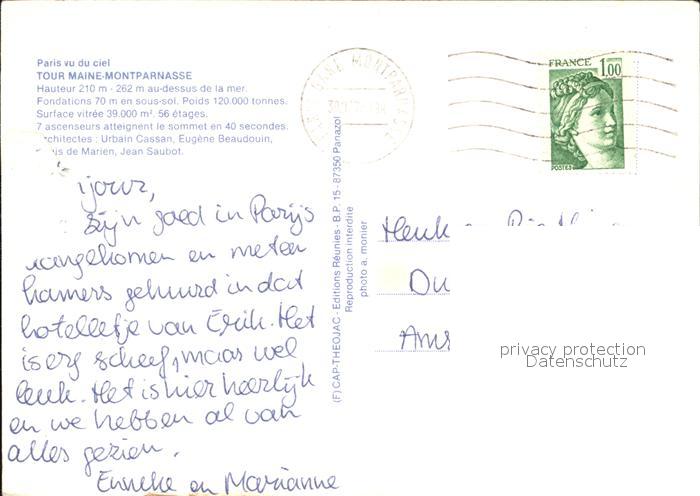 Paris vu du ciel
TOUR MAINE-MONTPARNASSE
Hauteur 210 m - 262 m au-dessus de la mer.
Fondations 70 m en sous-sol. Poids 120.000 tonnes.
Surface vitrée 39.000 m². 56 étages.
7 ascenseurs atteignent le sommet en 40 secondes.
rchitectes : Urbain Cassan, Eugène Beaudouin,
is de Marien, Jean Saubot.
jour,
Zijn goed in Parijs
aangekomen en meteen
kamers gehuurd in dat
hotelletje van Erik. Het
is erg scheef, maar wel
leuk. Het is hier heerlijk
en we hebben al van
alles gezien.
Enneke en Marianne
(F) CAP-THEOJAC - Editions Réunies - B.P. 15 - 87350 Panazol
Reproduction interdite
photo a. monier
GARE MONTPARNASSE
FRANCE 1,00
POSTES
Henk
Ou
Ams
privacy protection
Datenschutz